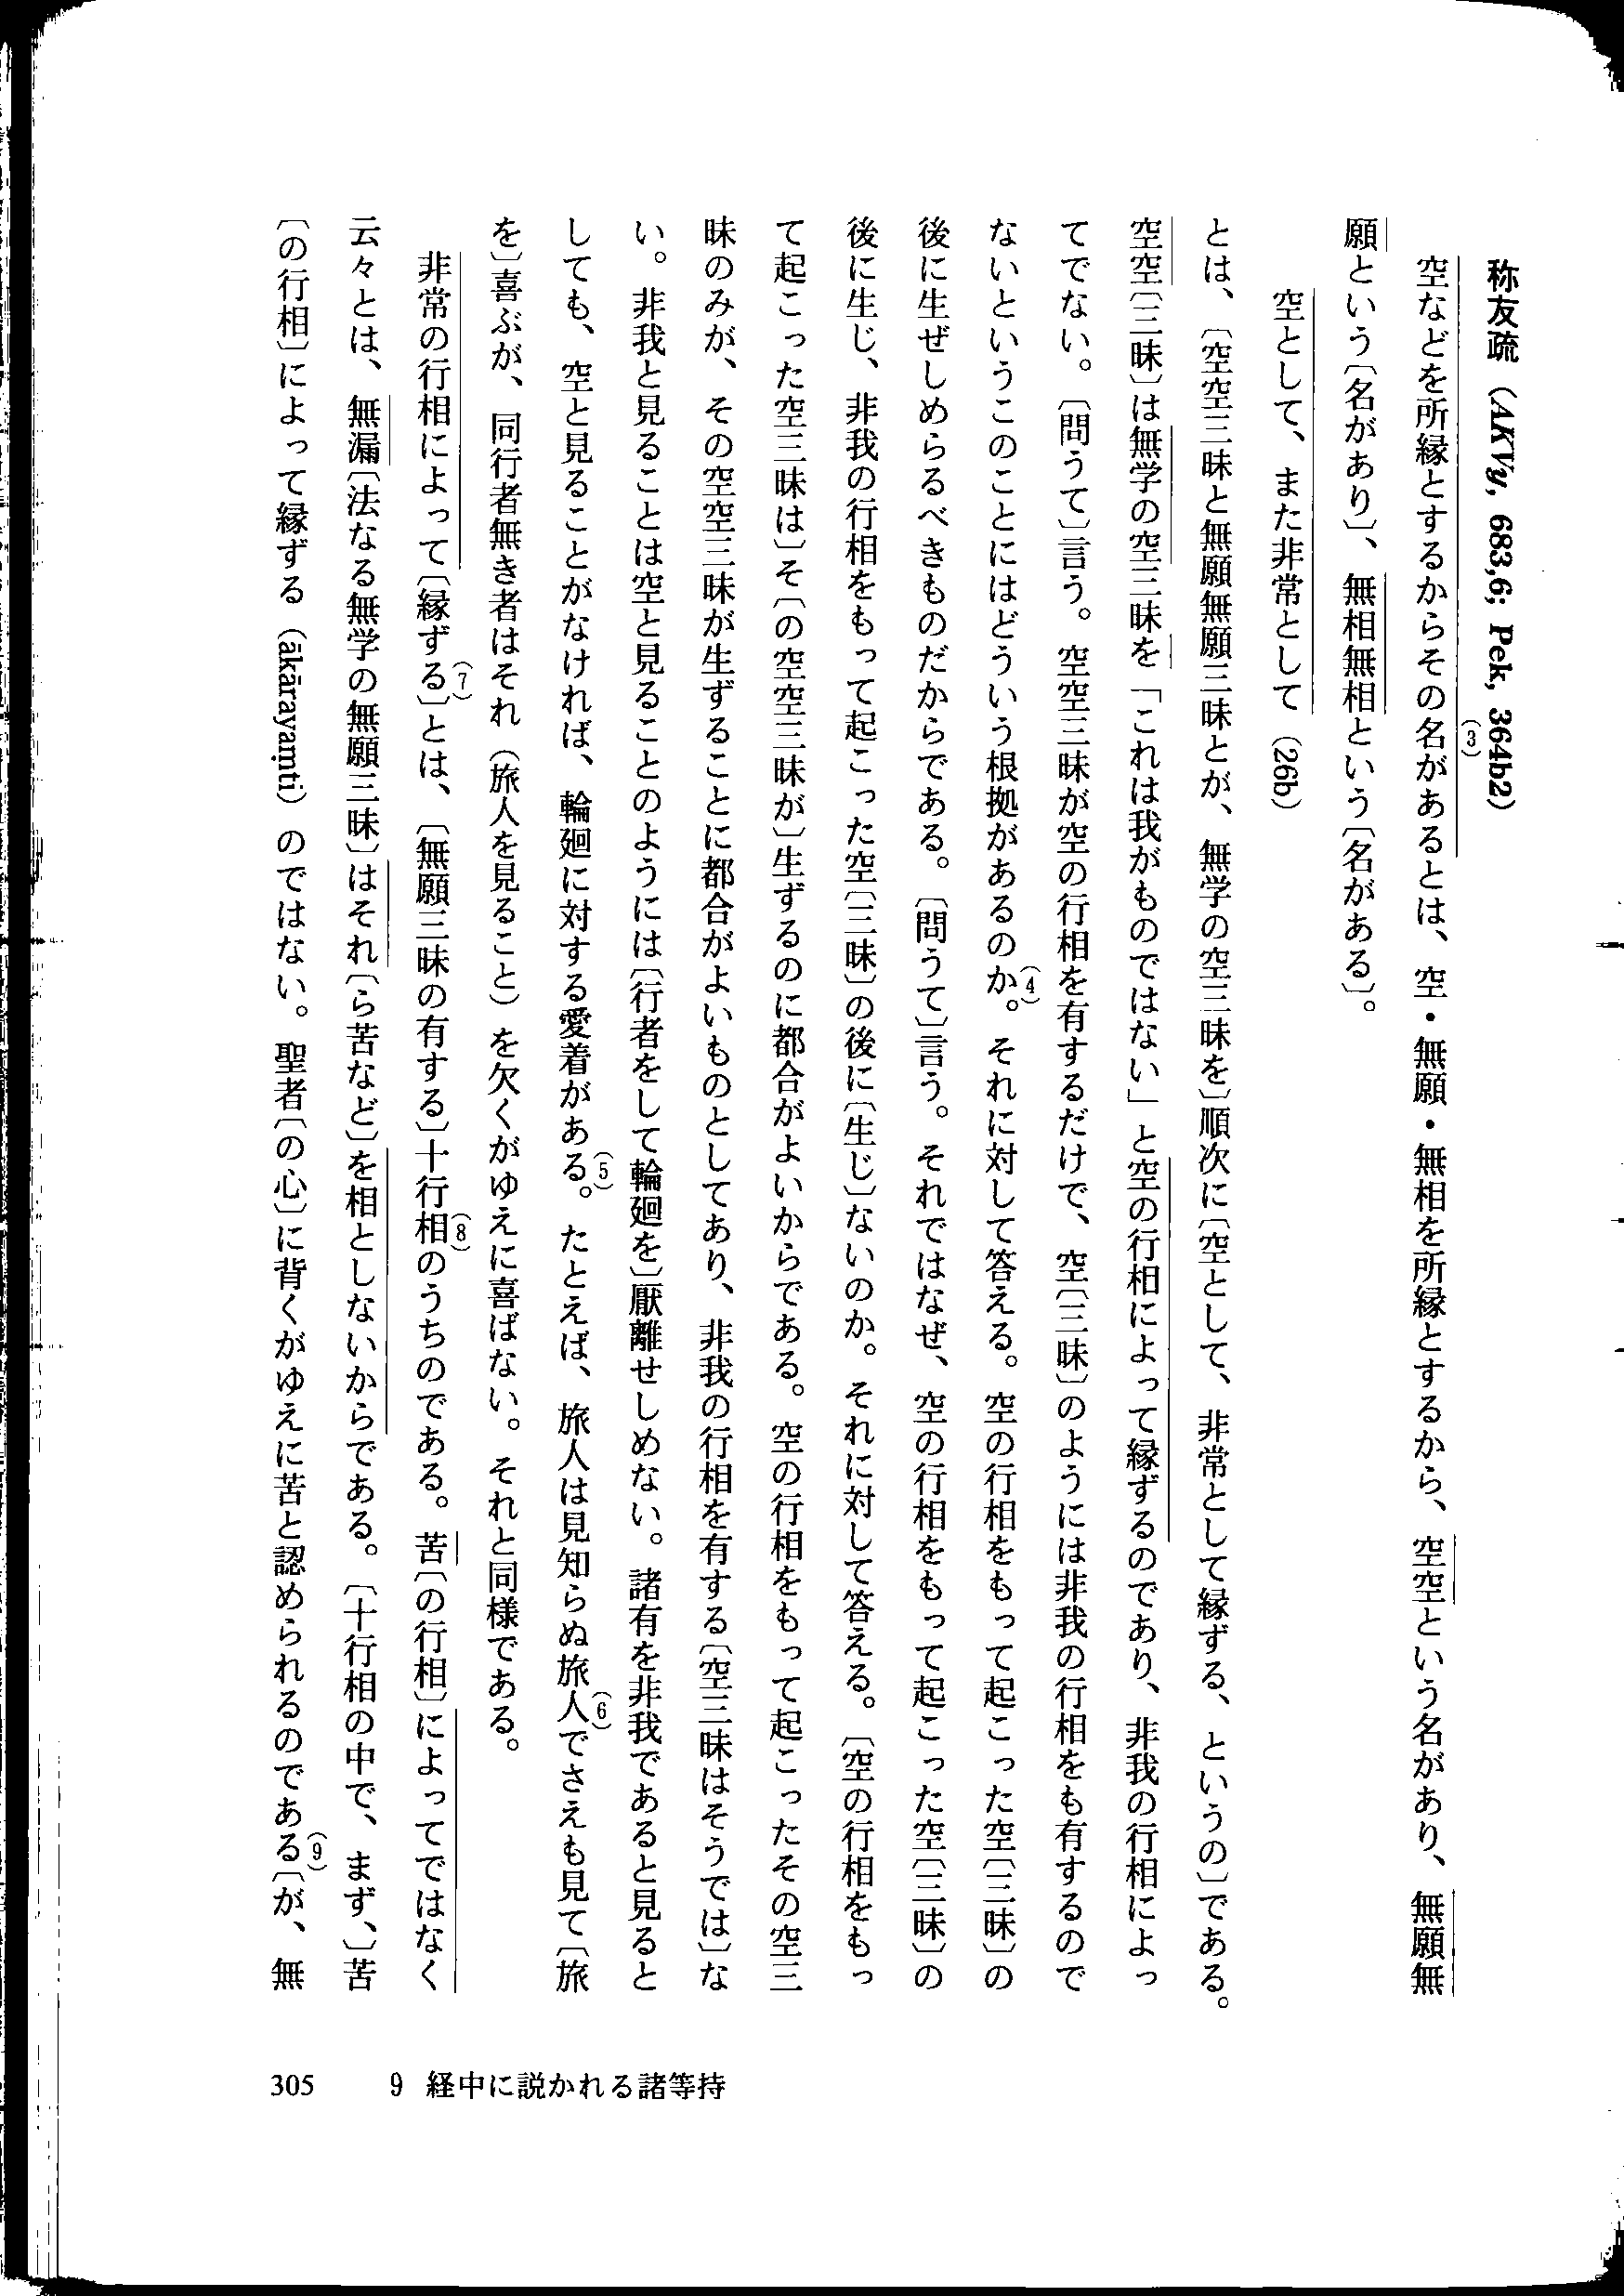 称友疏（AKVy, 683,6; Pek, 364b2）
空などを所縁とするからその名がある(3)とは、空・無願・無相を所縁とするから、空空という名があり、無願無
願という〔名があり〕、無相無相という〔名がある〕。
空として、また非常として（26b）
とは、〔空空三昧と無願無願三昧とが、無学の空三昧を〕順次に〔空として、非常として縁ずる、というの〕である。
空空〔三昧〕は無学の空三昧を「これは我がものではない」と空の行相によって縁ずるのであり、非我の行相によっ
てでない。〔問うて〕言う。空空三昧が空の行相を有するだけで、空〔三昧〕のようには非我の行相をも有するので
ないというこのことにはどういう根拠があるのか(4)。それに対して答える。空の行相をもって起こった空〔三昧〕の
後に生ぜしめらるべきものだからである。〔問うて〕言う。それではなぜ、空の行相をもって起こった空〔三昧〕の
後に生じ、非我の行相をもって起こった空〔三昧〕の後に〔生じ〕ないのか。それに対して答える。〔空の行相をもっ
て起こった空三昧は〕そ〔の空空三昧が〕生ずるのに都合がよいからである。空の行相をもって起こったその空三
昧のみが、その空空三昧が生ずることに都合がよいものとしてあり、非我の行相を有する〔空三昧はそうでは〕な
い。非我と見ることは空と見ることのようには〔行者をして輪廻を〕厭離せしめない。諸有を非我であると見ると
しても、空と見ることがなければ、輪廻に対する愛着がある(5)。たとえば、旅人は見知らぬ旅人(6)でさえも見て〔旅
を〕喜ぶが、同行者無き者はそれ（旅人を見ること）を欠くがゆえに喜ばない。それと同様である。
非常の行相によって〔縁ずる(7)〕とは、〔無願三昧の有する〕十行相(8)のうちのである。苦〔の行相〕によってではなく
云々とは、無漏〔法なる無学の無願三昧〕はそれ〔ら苦など〕を相としないからである。〔十行相の中で、まず、〕苦
〔の行相〕によって縁ずる（ākārayaṃti）のではない。聖者〔の心〕に背くがゆえに苦と認められるのである(9)〔が、無
305　9　経中に説かれる諸等持